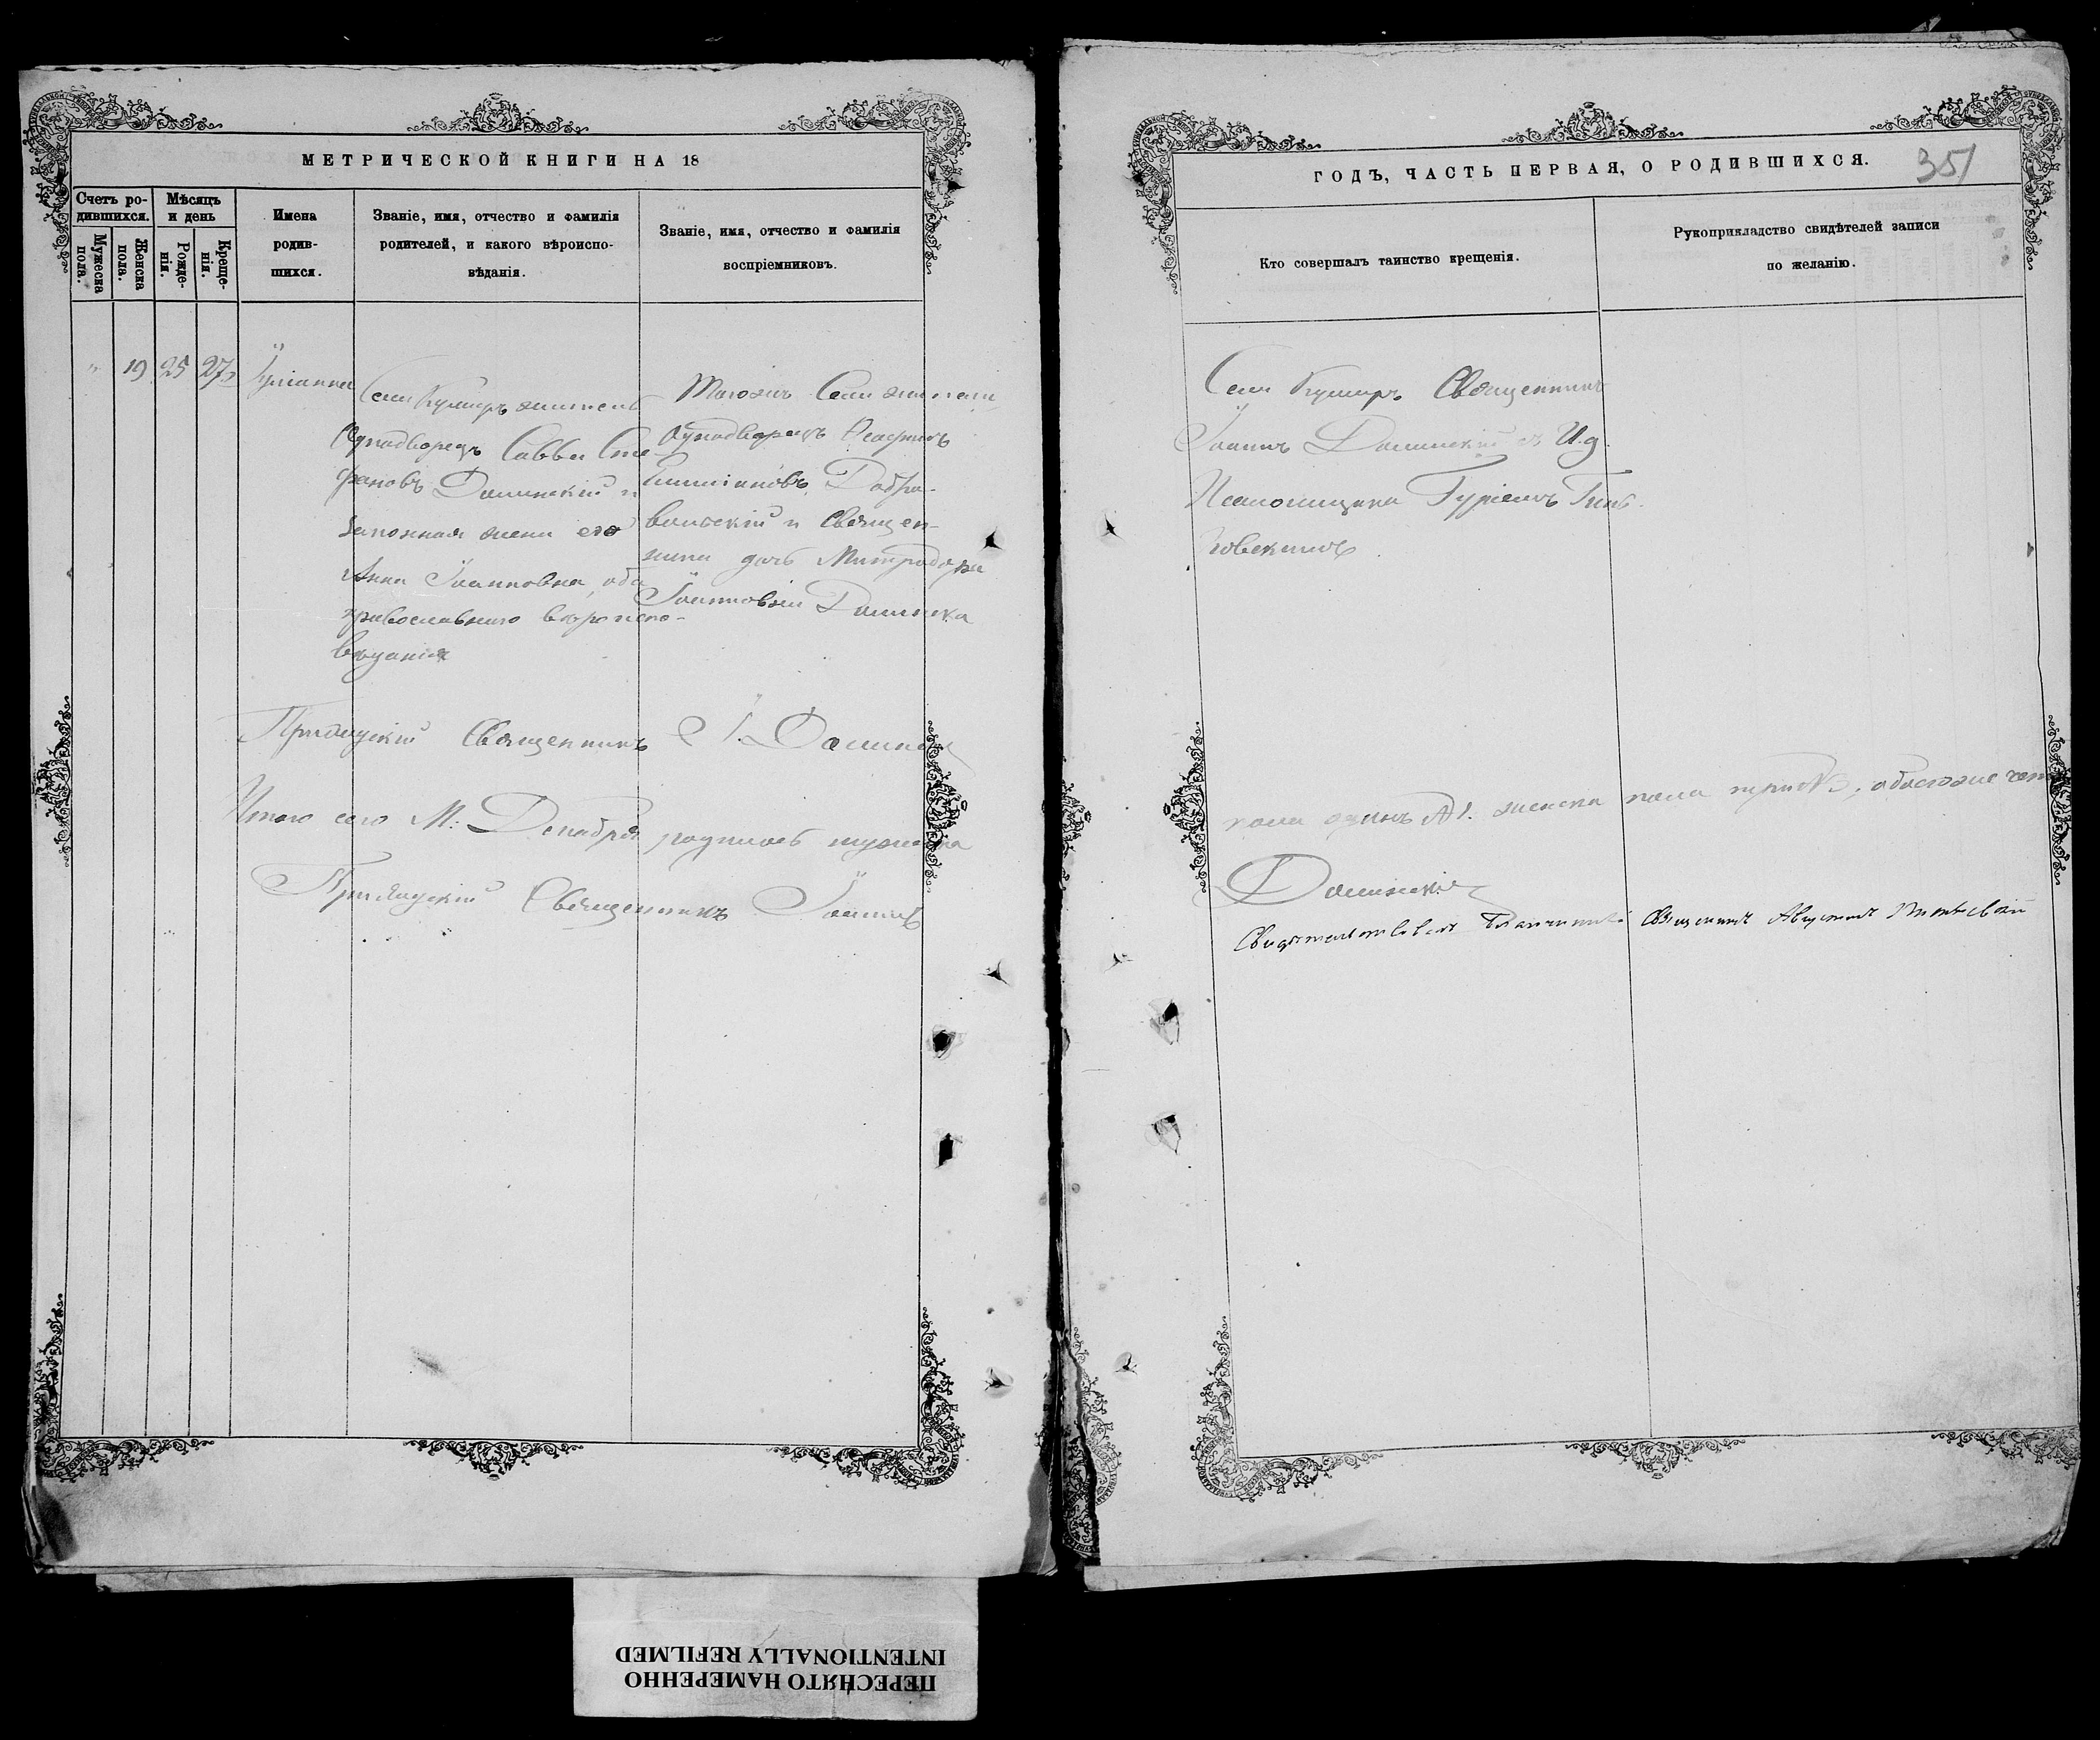 МЕТРИЧЕСКОЙ КНИГИ НА 18
Счетъ ро-
дившихся.
Мѣсяцъ
и день
Мужеска
пола.
Женска
пола.
Рожде-
нія.
Креще-
нія.
Имена
родив-
шихся.
Званіе, имя, отчество и фамилія
родителей, и какого вѣроиспо-
вѣданія.
Званіе, имя, отчество и фамилія
воспріемниковъ.
" 19 25 27
Іуліанна
Села Куширъ житель
Однодворецъ Савва Сте-
фановъ Далинскій и
законная жена его
Анна Іоанновна, оба
православнаго вѣроиспо-
вѣданія
Тогожъ Села житель
Однодворецъ
Добро-
вольскій и Священ-
ника дочь Митродора
Іоаннова Далинска
Приходскій Священникъ І. Далинск
Итого сего М: Декабря родилось мужеска
Приходскій Священникъ Іоаннъ
ГОДЪ, ЧАСТЬ ПЕРВАЯ, О РОДИВШИХСЯ.
351
Кто совершалъ таинство крещенія.
Рукоприкладство свидѣтелей записи
по желанію.
Села Куширъ Священникъ
Іоаннъ Далинскій съ И.д.
Псаломщика Гуріемъ
пола одинъ №1. женска пола три №3, обоегоже
Далинскій
Свидѣтельствовалъ Благочинный Священникъ Августинъ
ПЕРЕСНЯТО НАМЕРЕННО
INTENTIONALLY REFILMED